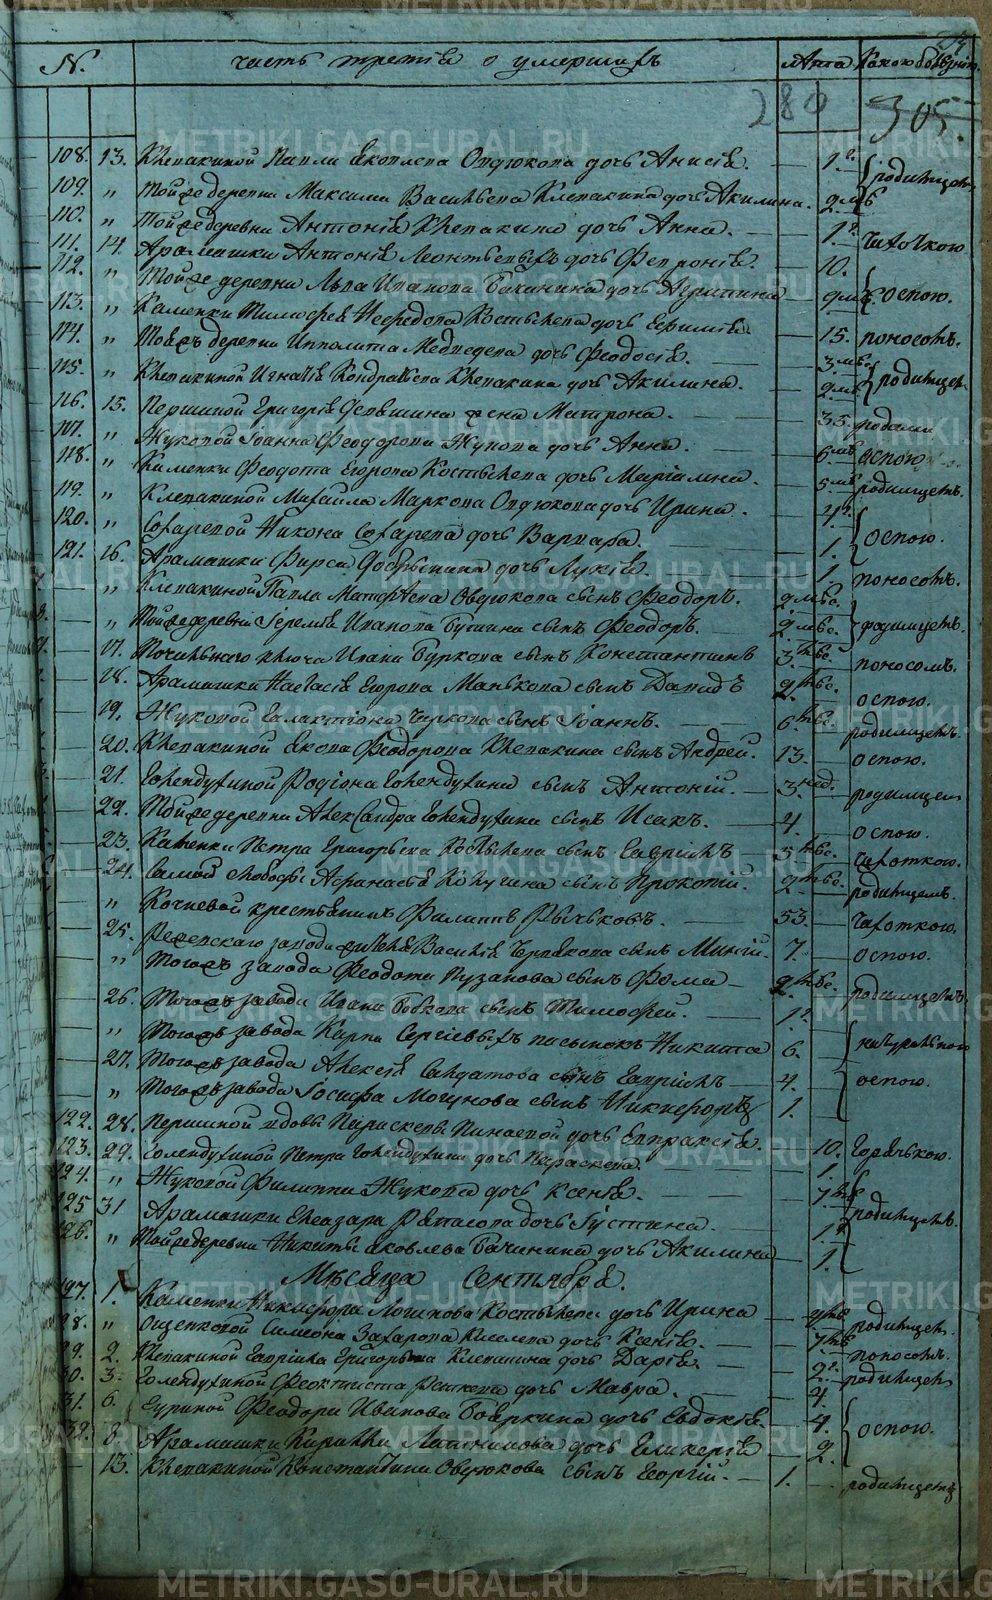 N. часть третія о умершихъ Лѣта Какою болѣзнію.
280 305.
108. 13. Клепакиной Павла Яковлева Овдюкова дочь Анисія. 1. родимцемъ
109. „ Той же деревни Максима Васильева Клепакина дочь Акилина. 2. мѣс
110. „ Той же деревни Антонія Клепакина дочь Анна. 1. чихоткою
111. 14. Арамашки Антонія Леонтьевыхъ дочь Февронія. 10.
112. „ Той же деревни Льва Иванова Бачинина дочь Агрипина 9 мѣс. оспою.
113. „ Каменки Тимофея Нефедова Костылева дочь 15. поносомъ.
114. „ Той жъ деревни Ипполита Медведева дочь Феодосія. 3. мѣс.
115. „ Клепакиной Игнатія Кондратьева Клепакина дочь Акилина. 2. мѣс родимцем.
116. 15. Першиной Григорія жена Матрона. 35. родами
117. „ Жуковой Іоанна Феодорова Жукова дочь Анна. 6 мѣс оспою
118. „ Каменки Феодота Егорова Костылева дочь Маріамна. 5 мѣс родимцемъ.
119. „ Клепакиной Михаила Маркова Овдюкова дочь Ирина. 4.
120. „ Сохаревой Никона Сохарева дочь Варвара. 1. оспою.
121. 16. Арамашки Фирса Добрынина дочь Лукія. 1. поносомъ.
„ Клепакиной Павла Матфеева Овдюкова сынъ Феодоръ. 2 мѣс.
„ Той же деревни Іеремія Иванова Бутина сынъ Феодоръ. 2 мѣс. родимцемъ.
17. Точильнаго ключа Ивана Буркова сынъ Константинъ 3. поносомъ.
18. Арамашки Настасіи Егорова Манькова сынъ Давидъ 2 оспою.
19. Жуковой Галактіона Чуркова сынъ Іоаннъ. 6. родимцемъ.
20. Клепакиной Якова Феодорова Клепакина сынъ Андрей. 13. оспою.
21. Голендухиной Родіона Голендухина сынъ Антоній. 3 нед. родимцем
22. Той же деревни Александра Голендухина сынъ Исакъ. 4. оспою.
23. Каменки Петра Григорьева Костылева сынъ Гавріилъ 5 чихоткою.
24. Самой слободы Афанасія Кожугина сынъ Прокопій. 2 родимцемъ.
„ Кочневой крестьянинъ Филиппъ Рычьковъ. 53. чахоткою.
25. Режевскаго завода Василія Черткова сынъ Михей. 7. оспою.
„ Того жъ завода Феодота Пузанова сынъ Фома 2 родимцемъ
26. Того жъ завода Ивана Бобкова сынъ Тимофей. 1.
„ Того жъ завода Карпа Сергіевыхъ пасынокъ Никита 6. натуральною
27. Того жъ завода Алексія Салдатова сынъ Гавріилъ 4. оспою.
„ Того жъ завода Іосифа Могунова сынъ Никифоръ 1.
122. 28. Першиной вдовы Параскевы Пинаевой дочь Евпраксія. 10. горячькою.
123. 29. Голендухиной Петра Голендухина дочь Параскева. 1.
124. „ Жуковой Филиппа Жукова дочь Ксенія. 7 родимцемъ.
125 31 Арамашки Елеазара дочь Іустина. 1.
126. „ Той же деревни Никиты Яковлева Бачинина дочь Акилина 1.
Мѣсяца Сентября.
127. 1. Каменки Никифора Логинова Костылева дочь Ирина родимцем.
28. „ Ощепковой Симеона Захарова Киселева дочь Ксенія. поносомъ.
29. 2. Клепакиной Гавріила Григорьева Клепакина дочь Дарія. 2. родимцем
30. 3. Голендухиной Феоктиста дочь Мавра. 4.
31. 6. Гуриной Феодора Иванова Бояркина дочь Евдокія. 4. оспою.
32. 8. Арамашки Кирилла дочь Гликерія 2.
13. Клепакиной Константина Овдюкова сынъ Георгій. 1. родимцемъ